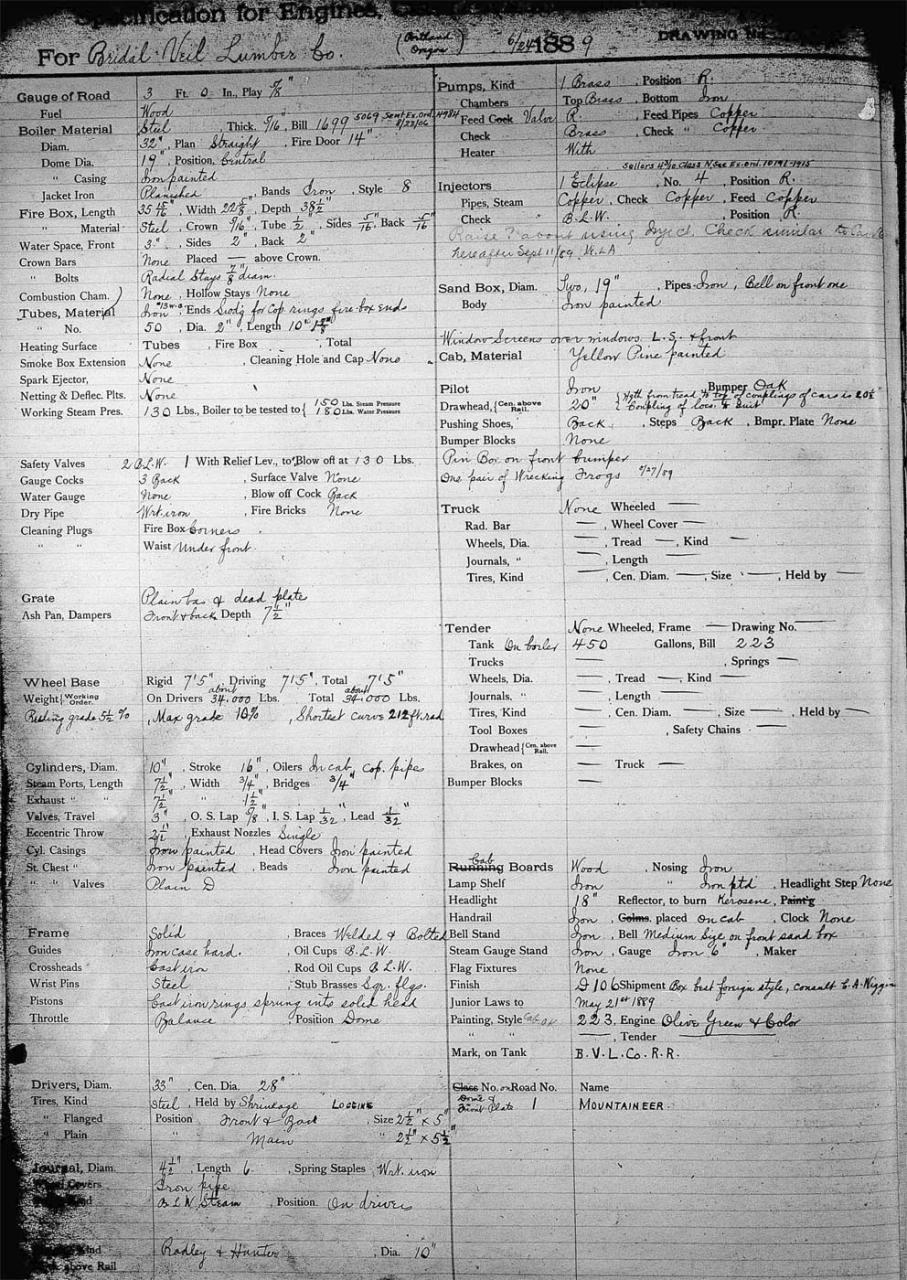 Specification for Engines,
DRAWING No.
For Bridal Veil Lumber Co. (Portland Oregon) 6/24 1889
Gauge of Road 3 Ft. 0 In., Play 5/8"
Fuel Wood
Boiler Material Steel Thick. 5/16, Bill 1699 5069 Sent Ex. Ord. N984 8/23/06
Diam. 32", Plan Straight, Fire Door 14"
Dome Dia. 19", Position, Central
" Casing Iron painted
Jacket Iron Planished, Bands Iron, Style 8
Fire Box, Length 35 7/16, Width 22 5/8, Depth 38 1/2"
" Material Steel, Crown 5/16", Tube 1/2, Sides 5/16, Back 5/16
Water Space, Front 3", Sides 2", Back 2"
Crown Bars None Placed — above Crown.
" Bolts Radial Stays 7/8" diam.
Combustion Cham. None, Hollow Stays None
Tubes, Material Iron #13 w.g., Ends Swdg for Cop rings fire-box ends
" No. 50, Dia. 2", Length 10'
Heating Surface Tubes , Fire Box , Total
Smoke Box Extension None , Cleaning Hole and Cap None
Spark Ejector, None
Netting & Deflec. Plts. None
Working Steam Pres. 130 Lbs., Boiler to be tested to { 150 Lbs. Steam Pressure 180 Lbs. Water Pressure
Safety Valves 2 B.L.W. 1 With Relief Lev., to Blow off at 130 Lbs.
Gauge Cocks 3 Back , Surface Valve None
Water Gauge None , Blow off Cock Back
Dry Pipe Wrt. iron , Fire Bricks None
Cleaning Plugs Fire Box Corners
" " Waist Under front.
Grate Plain bas & dead plate
Ash Pan, Dampers Front & back Depth 7 1/2"
Wheel Base Rigid 7'5", Driving 7'5", Total 7'5"
Weight { Working Order. On Drivers about 34.000 Lbs. Total about 34.000 Lbs.
Ruling grade 5 1/2 %, Max grade 10%, Shortest Curve 212 ft. rad
Cylinders, Diam. 10", Stroke 16", Oilers In cab, Cop. pipes
Steam Ports, Length 7 1/2", Width 3/4", Bridges 3/4"
Exhaust " " 7 1/2" " 1 1/2"
Valves, Travel 3", O. S. Lap 5/8", I. S. Lap 1/32", Lead 1/32
Eccentric Throw 2 1/2", Exhaust Nozzles Single
Cyl. Casings Iron painted , Head Covers Iron painted
St. Chest " Iron painted , Beads Iron painted
" " Valves Plain D
Frame Solid , Braces Welded & Bolted
Guides Iron case hard. , Oil Cups B.L.W.
Crossheads Cast iron , Rod Oil Cups B.L.W.
Wrist Pins Steel , Stub Brasses Sqr. flgs.
Pistons Cast iron rings sprung into solid head
Throttle Balance , Position Dome
Drivers, Diam. 33", Cen. Dia. 28"
Tires, Kind Steel, Held by Shrinkage LOGGING
" Flanged Position Front & Back , Size 2 1/2" × 5"
" Plain " Main " 2 1/2" × 5 1/2"
Journal, Diam. 4 1/2", Length 6 , Spring Staples Wrt. iron
Wheel Covers Iron pipe
Kind B L W Steam , Position. On drivers
Kind Radley & Hunter , Dia. 10"
above Rail
Pumps, Kind 1 Brass , Position R.
Chambers Top Brass , Bottom Iron
Feed Cock Valve R. , Feed Pipes Copper
Check Brass , Check " Copper
Heater With
Sellers Class N. See Ex. ord. 10191-1915
Injectors 1 Eclipse , No. 4 , Position R.
Pipes, Steam Copper, Check Copper, Feed Copper
Check B.L.W. , Position R.
Raise about using Inject. Check similar to
hereafter Sept 11/89
Sand Box, Diam. Two, 19" , Pipes Iron, Bell on front one
Body Iron painted
Window Screens over windows L.S. & front
Cab, Material Yellow Pine painted
Pilot Iron Bumper Oak
Drawhead, { Cen. above Rail. 20" { Hgth from tread to top of couplings of cars is 20 1/2" Coupling of loco. to suit
Pushing Shoes, Back , Steps Back , Bmpr. Plate None
Bumper Blocks None
Pin Box on front bumper
One pair of Wrecking Frogs 6/27/89
Truck None Wheeled —
Rad. Bar — , Wheel Cover —
Wheels, Dia. — , Tread — , Kind —
Journals, " — , Length —
Tires, Kind — , Cen. Diam. — , Size — , Held by —
Tender None Wheeled, Frame — Drawing No. —
Tank On boiler 450 Gallons, Bill 223
Trucks — , Springs —
Wheels, Dia. — , Tread — , Kind —
Journals, " — , Length —
Tires, Kind — , Cen. Diam. — , Size — , Held by —
Tool Boxes — , Safety Chains —
Drawhead { Cen. above Rail. —
Brakes, on — Truck —
Bumper Blocks —
Running Cab Boards Wood , Nosing Iron
Lamp Shelf Iron " Iron ptd , Headlight Step None
Headlight 18" Reflector, to burn Kerosene, Paint'g
Handrail Iron , Colms. placed On cab , Clock None
Bell Stand Iron , Bell Medium Size on front sand box
Steam Gauge Stand Iron , Gauge Iron 6" , Maker
Flag Fixtures None
Finish D 106 Shipment Box best foreign style, consult C. A. Wiggin
Junior Laws to May 21st 1889
Painting, Style Cab 223, Engine Olive Green & Color
" " — , Tender —
Mark, on Tank B.V.L.Co.R.R.
Class No. or Road No. Name
Dome & Front Plate 1 MOUNTAINEER.